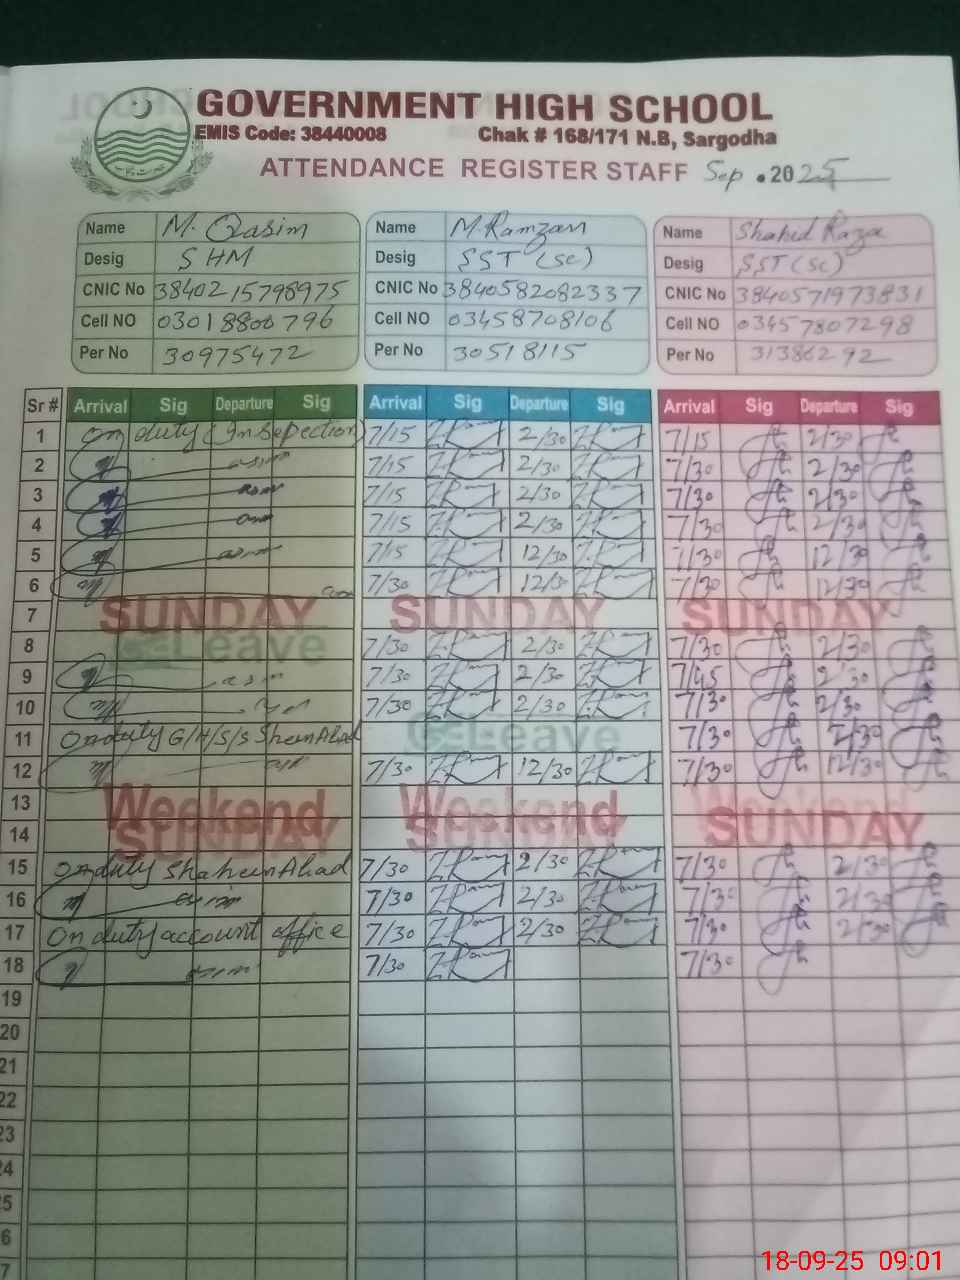 GOVERNMENT HIGH SCHOOL
EMIS Code: 38440008 Chak # 168/171 N.B, Sargodha
ATTENDANCE REGISTER STAFF Sep .2025
Name M. Qasim Name M. Ramzan Name Shahid Raza
Desig SHM Desig SST (Sc) Desig SST (Sc)
CNIC No 3840215798975 CNIC No 3840582082337 CNIC No 3840571973831
Cell NO 03018800796 Cell NO 03458708106 Cell NO 03457807298
Per No 30975472 Per No 30518115 Per No 31386292
Sr # Arrival Sig Departure Sig Arrival Sig Departure Sig Arrival Sig Departure Sig
1 On duty (Inspection) 7/15 2/30 7/15 2/30
2 7/15 2/30 7/30 2/30
3 7/15 2/30 7/30 2/30
4 7/15 2/30 7/30 2/30
5 7/15 12/30 7/30 12/30
6 7/30 12/30 7/30 12/30
7 SUNDAY SUNDAY SUNDAY
8 Leave 7/30 2/30 7/30 2/30
9 7/30 2/30 7/45 2/30
10 7/30 2/30 7/30 2/30
11 On duty G/H/S/S Leave 7/30 2/30
12 7/30 12/30 7/30 12/30
13 Weekend Weekend
14 SUNDAY SUNDAY SUNDAY
15 On duty 7/30 2/30 7/30 2/30
16 7/30 2/30 7/30 2/30
17 On duty account office 7/30 2/30 7/30 2/30
18 7/30 7/30
19
20
21
22
23
24
5
6
7
18-09-25 09:01